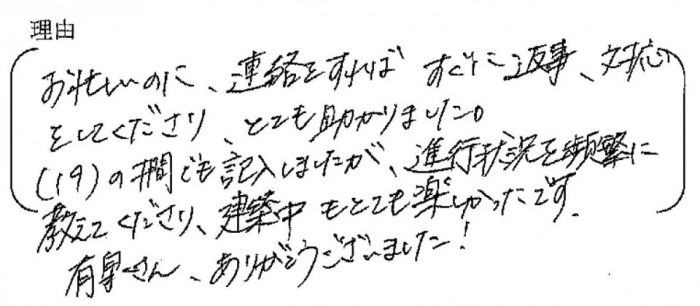 理由
お忙しいのに、連絡をすれば すぐに返事、対応
をしてくださり、とても助かりました。
(19)の欄でも記入しましたが、進行状況を頻繁に
教えてくださり、建築中もとても楽しかったです。
さん、ありがとうございました！